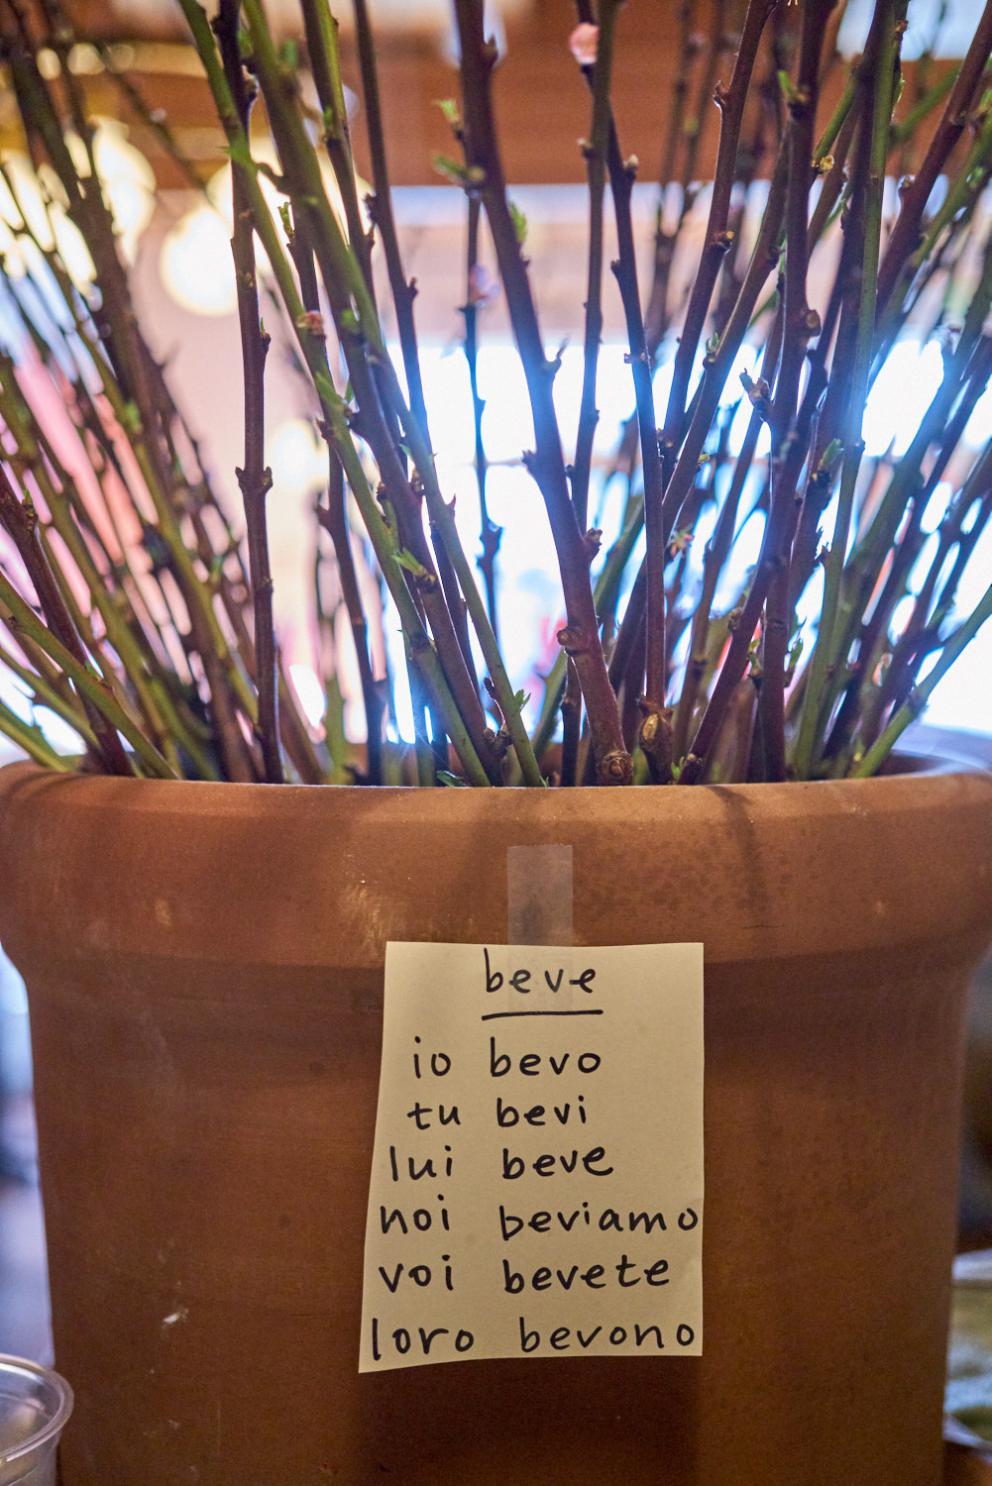 beve
io bevo
tu bevi
lui beve
noi beviamo
voi bevete
loro bevono